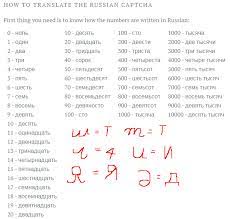 HOW TO TRANSLATE THE RUSSIAN CAPTCHA
First thing you need is to know how the numbers are written in Russian:
0 - ноль 10 - десять 100 - сто 1000 - тысяча
1 - один 20 - двадцать 200 - двести 2000 - две тысячи
2 - два 30 - тридцать 300 - триста 3000 - три тысячи
3 - три 40 - сорок 400 - четыреста 4000 - четыре тысячи
4 - четыре 50 - пятьдесят 500 - пятьсот 5000 - пять тысяч
5 - пять 60 - шестьдесят 600 - шестьсот 6000 - шесть тысяч
6 - шесть 70 - семьдесят 700 - семьсот 7000 - семь тысяч
7 - семь 80 - восемьдесят 800 - восемьсот 8000 - восемь тысяч
8 - восемь 90 - девяносто 900 - девятьсот 9000 - девять тысяч
9 - девять
10 - десять
11 - одиннадцать
12 - двенадцать
13 - тринадцать
14 - четырнадцать
15 - пятнадцать
16 - шестнадцать
17 - семнадцать
18 - восемнадцать
19 - девятнадцать
20 - двадцать
ш = т т = Т
ч = 4 и = И
Я = Я = Д